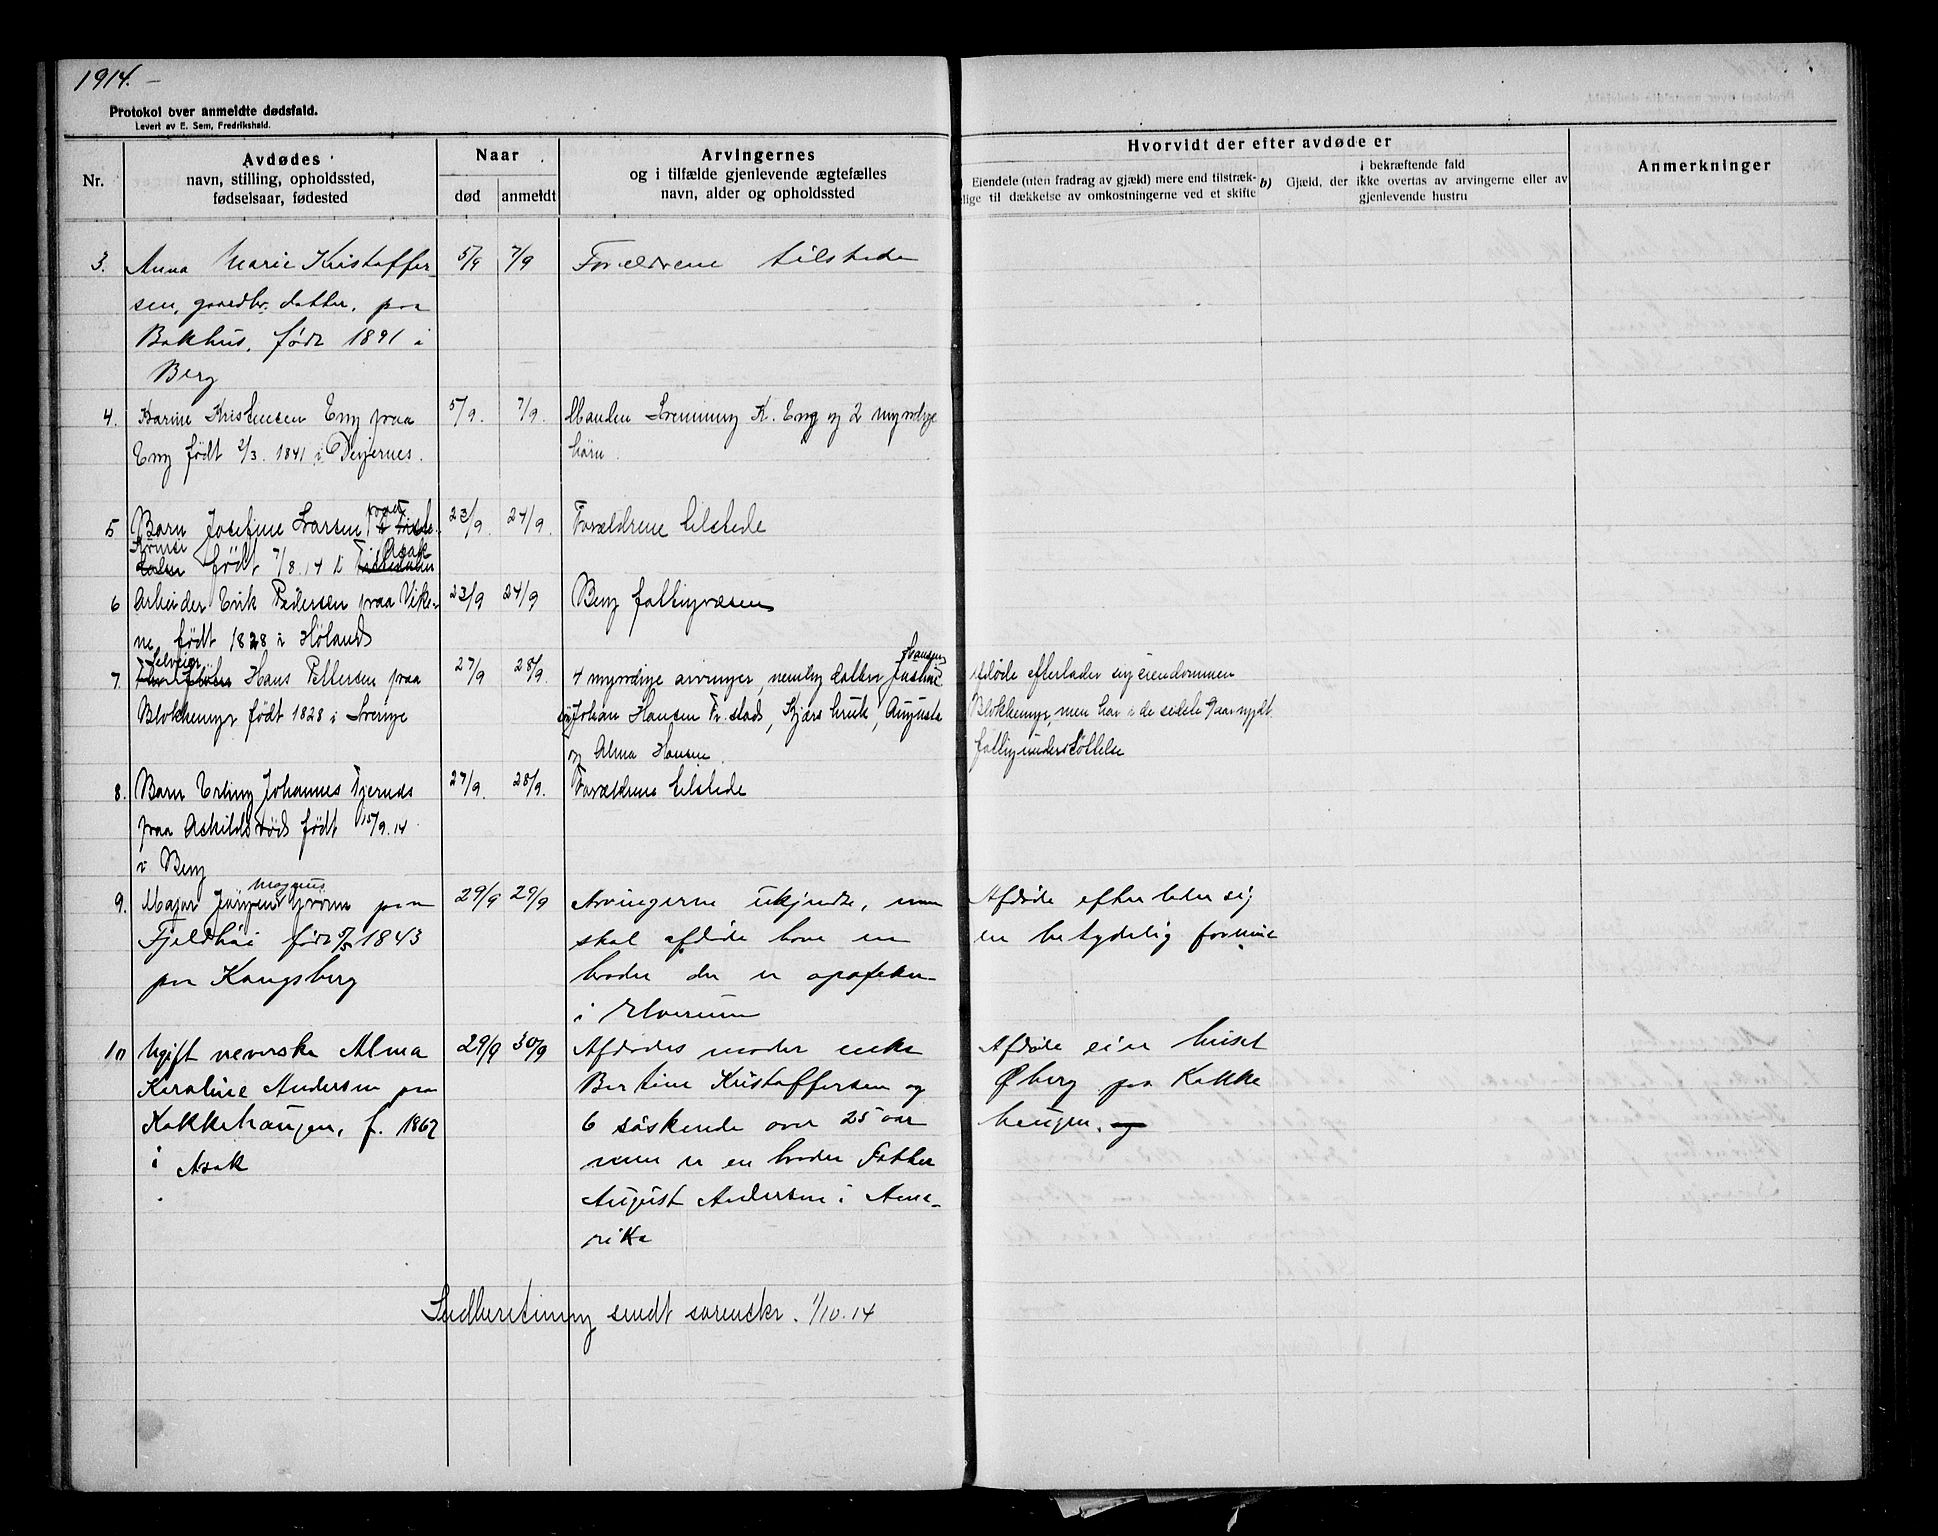 1914. –
Protokol over anmeldte dødsfald.
Levert av E. Sem, Fredrikshald.
Nr.
Avdødes
navn, stilling, opholdssted,
fødselsaar, fødested
Naar
død
anmeldt
Arvingernes
og i tilfælde gjenlevende ægtefælles
navn, alder og opholdssted
Hvorvidt der efter avdøde er
Eiendele (uten fradrag av gjæld) mere end tilstræk-
lige til dækkelse av omkostningerne ved et skifte
b) Gjæld, der
i bekræftende fald
ikke overtas av arvingerne eller av
gjenlevende hustru
Anmerkninger
3. Anna Marie Kristoffer- 5/9 7/9 Forældrene tilstede
sen, gaardbr. datter, paa
Bakhus, født 1891 i
Berg
4. Karine Kristensen Eng paa 5/9. 7/9. Manden Svenning K. Eng og 2 myndige
Eng født 2/3. 1841 i
børn.
5 Barn Josefine Larsen paa 23/9. 24/9. Forældrene tilstede
født 7/8.14 i Asak
6 Arbeider Erik Pedersen paa Vike- 23/9 24/9 Berg fattigvæsen
ne født 1828 i Høland
7. Selveier Hans Pettersen paa 27/9 28/9. 4 myndige arvinger, nemlig datter Justine Hansen
Blokkemyr født 1828 i Sverige
Johan Hansen Fr.stad, Augusta
og Alma Hansen.
Afdøde efterlader sig eiendommen
Blokkemyr, men har i de sidste 9 aar nydt
fattigunderstøttelse
8. Barn Erling Johannes 27/9. 28/9. Forældrene tilstede
paa Askildsrød født 15/9.14
i Berg
9. Major Jørgen Magnus paa 29/9 29/9 Arvingerne ukjendte, men
Fjeldhøi født 1843
paa Kongsberg
skal afdøde have en
broder der er apoteker
i Elverum
Afdøde efterlader sig
en betydelig formue
10 Ugift veverske Alma 29/9 30/9 Afdødes moder enke
Karoline Andersen paa
Kakkehaugen, f. 1862
i Asak
Bertine Kristoffersen og
6 søskende over 25 aar
men er en broder
August Andersen i Ame-
rika
Afdøde eier huset
Øberg paa Kakke
haugen. og
Indberetning sendt sorenskr. 1/10.14